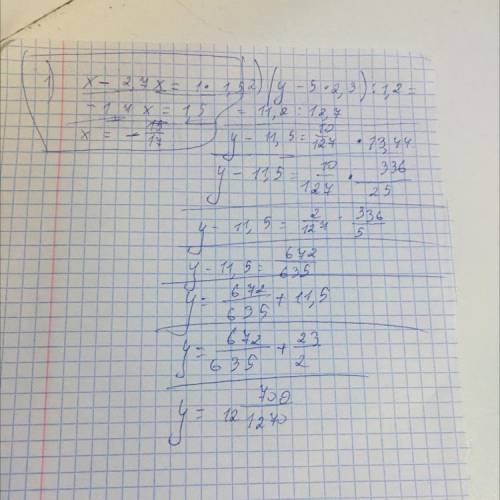 1) x - 2,7x = 1 · 1,5
-1,7x = 1,5
x = - 15/17
2) (y - 5 · 2,3) : 1,2 =
= 11,2 : 12,7
y - 11,5 = 10/127 · 13,44
y - 11,5 = 10/127 · 336/25
y - 11,5 = 2/127 · 336/5
y - 11,5 = 672/635
y = 672/635 + 11,5
y = 672/635 + 23/2
y = 12 709/1270